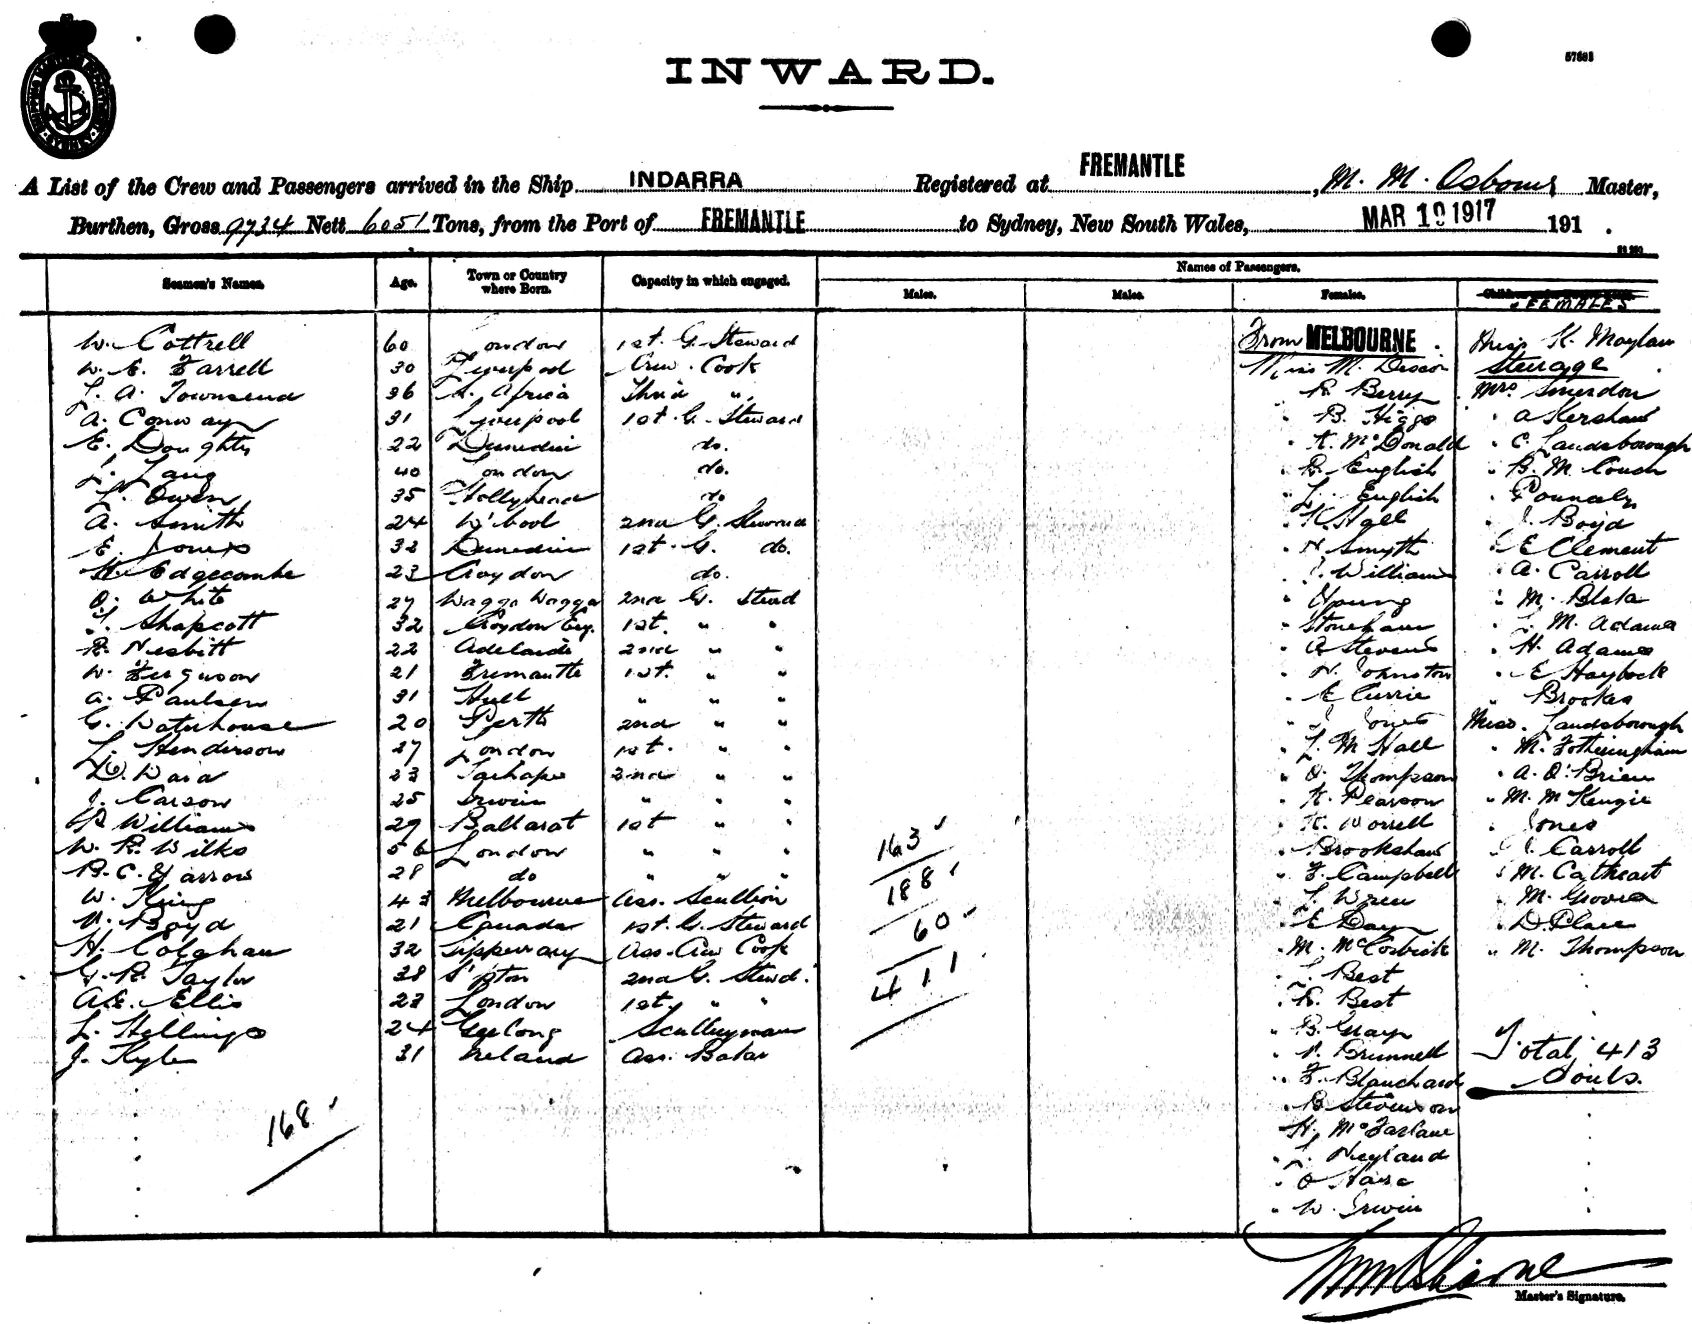 57683
INWARD.
A List of the Crew and Passengers arrived in the Ship INDARRA Registered at FREMANTLE, M. M. Osborne Master,
Burthen, Gross 9734 Nett 6051 Tons, from the Port of FREMANTLE to Sydney, New South Wales, MAR 19 1917 191 .
Seamen's Names. Age. Town or Country where Born. Capacity in which engaged. Names of Passengers.
Males. Males. Females. FEMALES
W. Cottrell 60 London 1st. G. Steward From MELBOURNE. Miss K. Maylan
W. E. Farrell 30 Liverpool Crew Cook Miss M. Deacon Steerage
L. A. Townsend 36 S. Africa Third " " R. Berry Mrs. Smerdon
A. Conway 31 Liverpool 1st. G. Steward " B. Higgs " A Kershaw
E. Doughty 22 Dunedin do. " K. McDonald " C. Landsborough
L. Lang 40 London do. " R. English " B. M. Couch
L. Owen 35 Hollyhead do " L. English " Connely
A. Smith 24 W'bool 2nd G. Steward " K Hall " J. Boyd
E. Jones 32 Dunedin 1st. G. do. " H Smyth " E Clement
H. Edgecombe 23 Croydon do. " J. Williams " A. Carroll
O. White 27 Wagga Wagga 2nd G. Stewd " Young " M. Blake
T. Shapcott 32 Croydon Eng. 1st. " " " Stoneham " L. M. Adams
R. Nesbitt 22 Adelaide 2nd " " " A Stevens " H. Adams
W. Ferguson 21 Fremantle 1st. " " " N. Johnston " E Haybock
A. Paulsen 31 Hull " " " " E Currie " Brookes
G. Waterhouse 20 Perth 2nd " " " J Jones Miss. Landsborough
L. Henderson 27 London 1st. " " " L. M Hall " M. Fotheringham
D. Ward 23 Taihape 2nd " " " O. Thompson " A. O'Brien
J. Carson 25 Irwin " " " " K. Pearson " M. McKenzie
P. Williams 29 Ballarat 1st " " " K. Worrell " Jones
W. R. Wilks 56 London " " " 163 " Brookshaw " J. Carroll
R. C. Yarrow 28 do " " " 188 " F. Campbell " M. Cathcart
W. King 43 Melbourne Ass. Scullion " L. Wren " M. Grover
N. Boyd 21 Canada 1st. G. Steward 60 " E Day " D. Place
H. Colghan 32 Tipperary Ass. Crew Cook " M. McCosbick " M. Thompson
G. R. Taylor 38 S'pton 2nd G. Stewd. 411 " L. Best
A. E. Ellis 23 London 1st. " " " R. Best
L. Hellings 24 Geelong Sculleryman " B. Gray
J. Kyle 31 Ireland Ass. Baker " N. Brunnell Total, 413
" F. Blanchard Souls.
" B Stevenson
168 " H. McFarlane
" L. Neyland
" O Haire
" W. Irwin
Master's Signature.